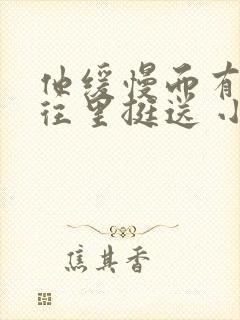 他缓慢而有
往里挺送 小
焦其香